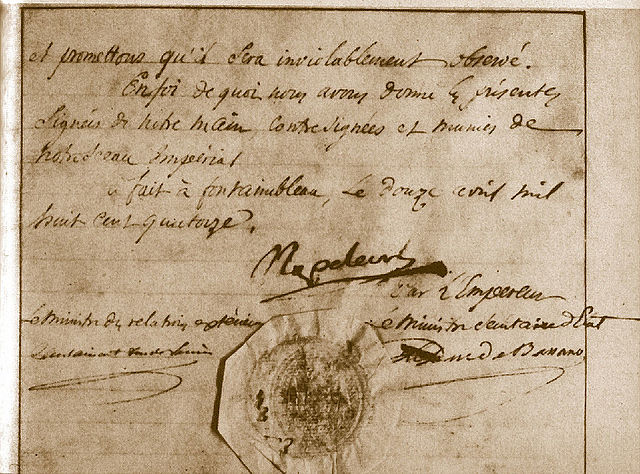 et promettons qu'il Sera inviolablement observé.
En foi de quoi nous avons donné les présentes
Signées de notre main, Contresignées et munies de
notre Sceau Impérial
fait à fontainebleau, Le Douze avril mil
huit cent quatorze.
Napoleon
Par L'Empereur
Le Ministre des relations extérieures
Le Ministre Secrétaire d'Etat
Le Duc de Bassano